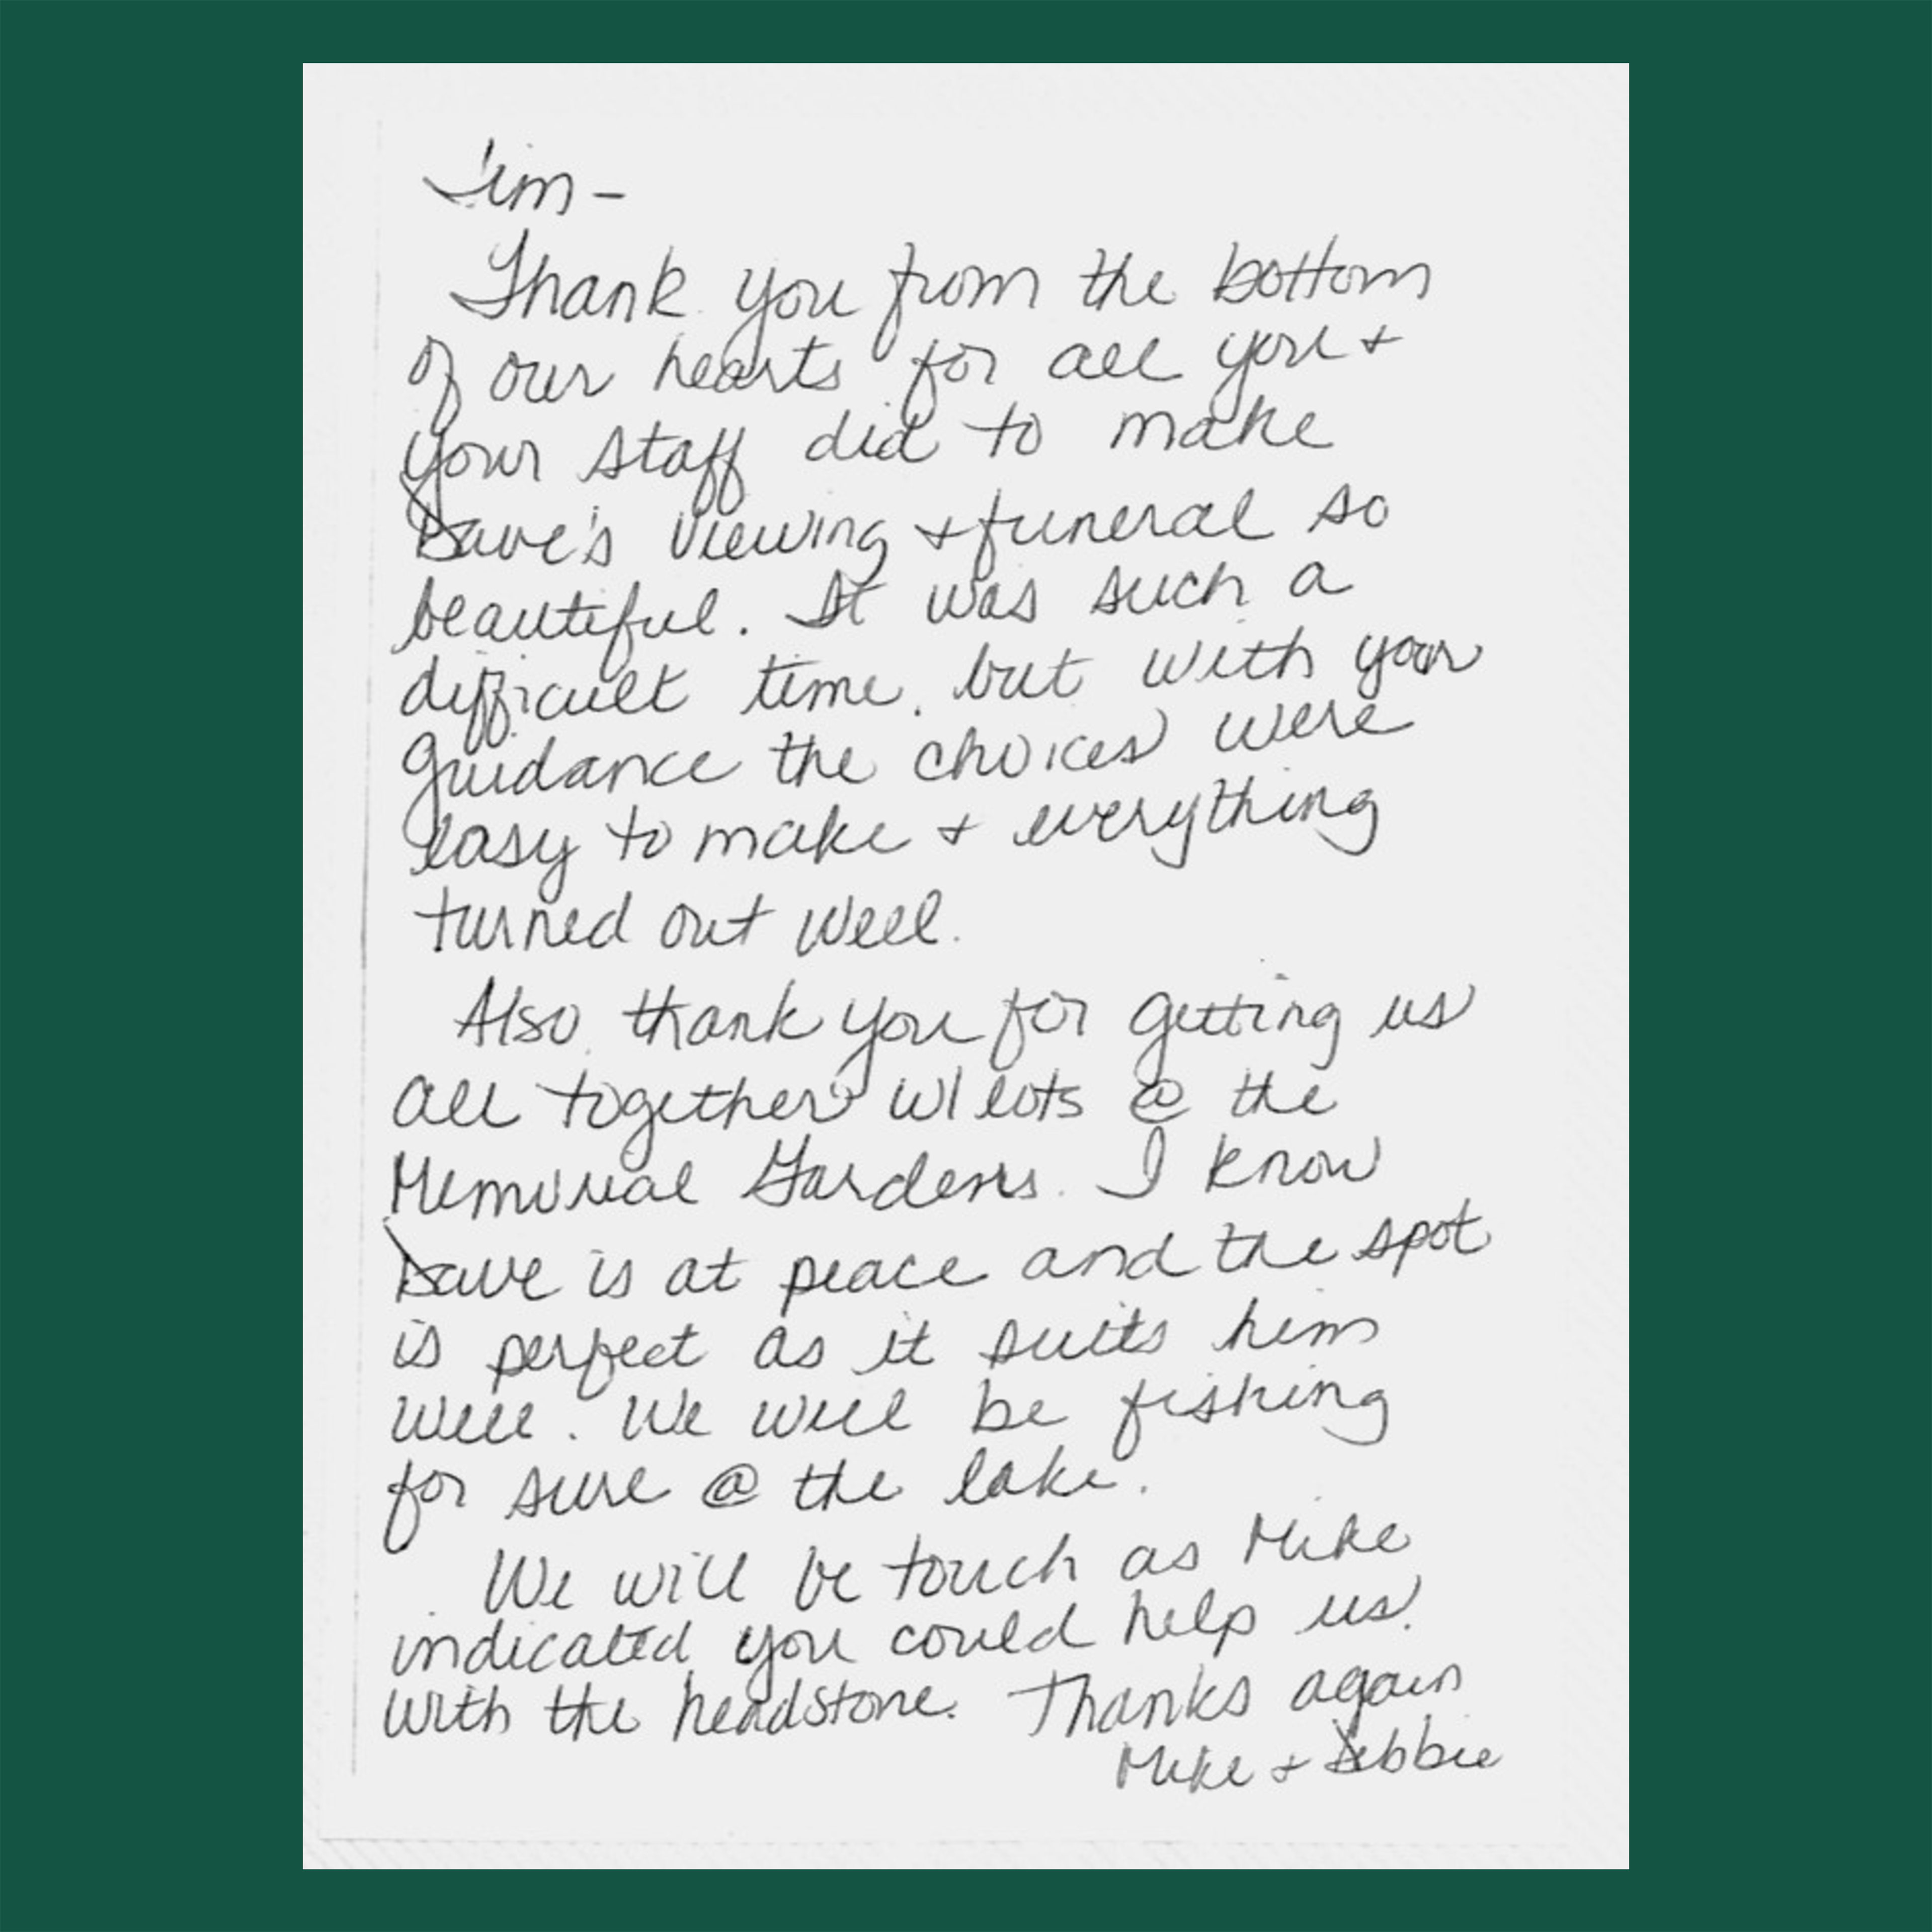 Jim -
Thank you from the bottom
of our hearts for all you +
your staff did to make
Dave's viewing + funeral so
beautiful. It was such a
difficult time, but with your
guidance the choices were
easy to make + everything
turned out well.
Also, thank you for getting us
all together w/ lots @ the
Memorial Gardens. I know
Dave is at peace and the spot
is perfect as it suits him
well. We will be fishing
for sure @ the lake.
We will be touch as Mike
indicated you could help us
with the headstone. Thanks again
Mike + Debbie